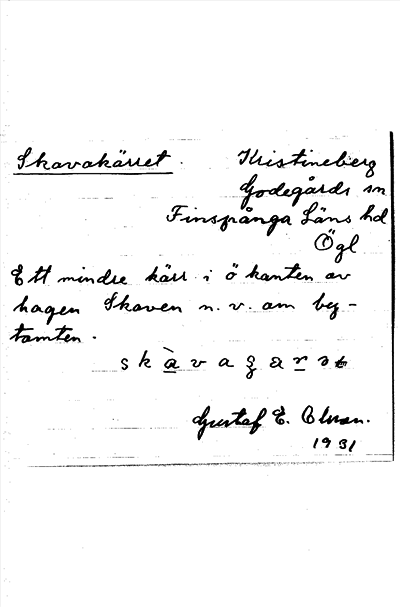 Skavakärret. Kristineberg
Godegårds sn
Finspånga Läns hd
Ögl
Ett mindre kärr i ö kanten av
hagen Skaven n. v. om by-
tomten.
Gustaf E.
1931